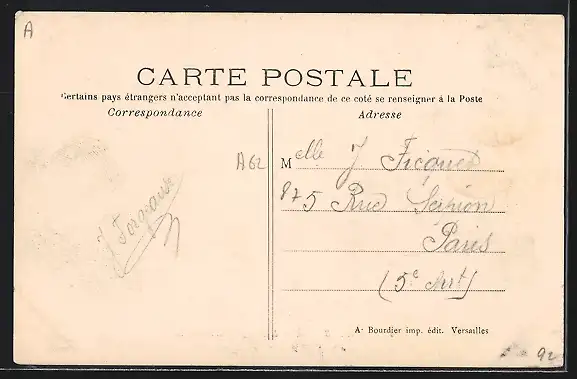 A
CARTE POSTALE
Certains pays étrangers n'acceptant pas la correspondance de ce coté se renseigner à la Poste
Correspondance
Adresse
A62
Melle J Ficquet
8 Rue Scipion
Paris
(5e Arrt)
A. Bourdier imp. édit. Versailles
92